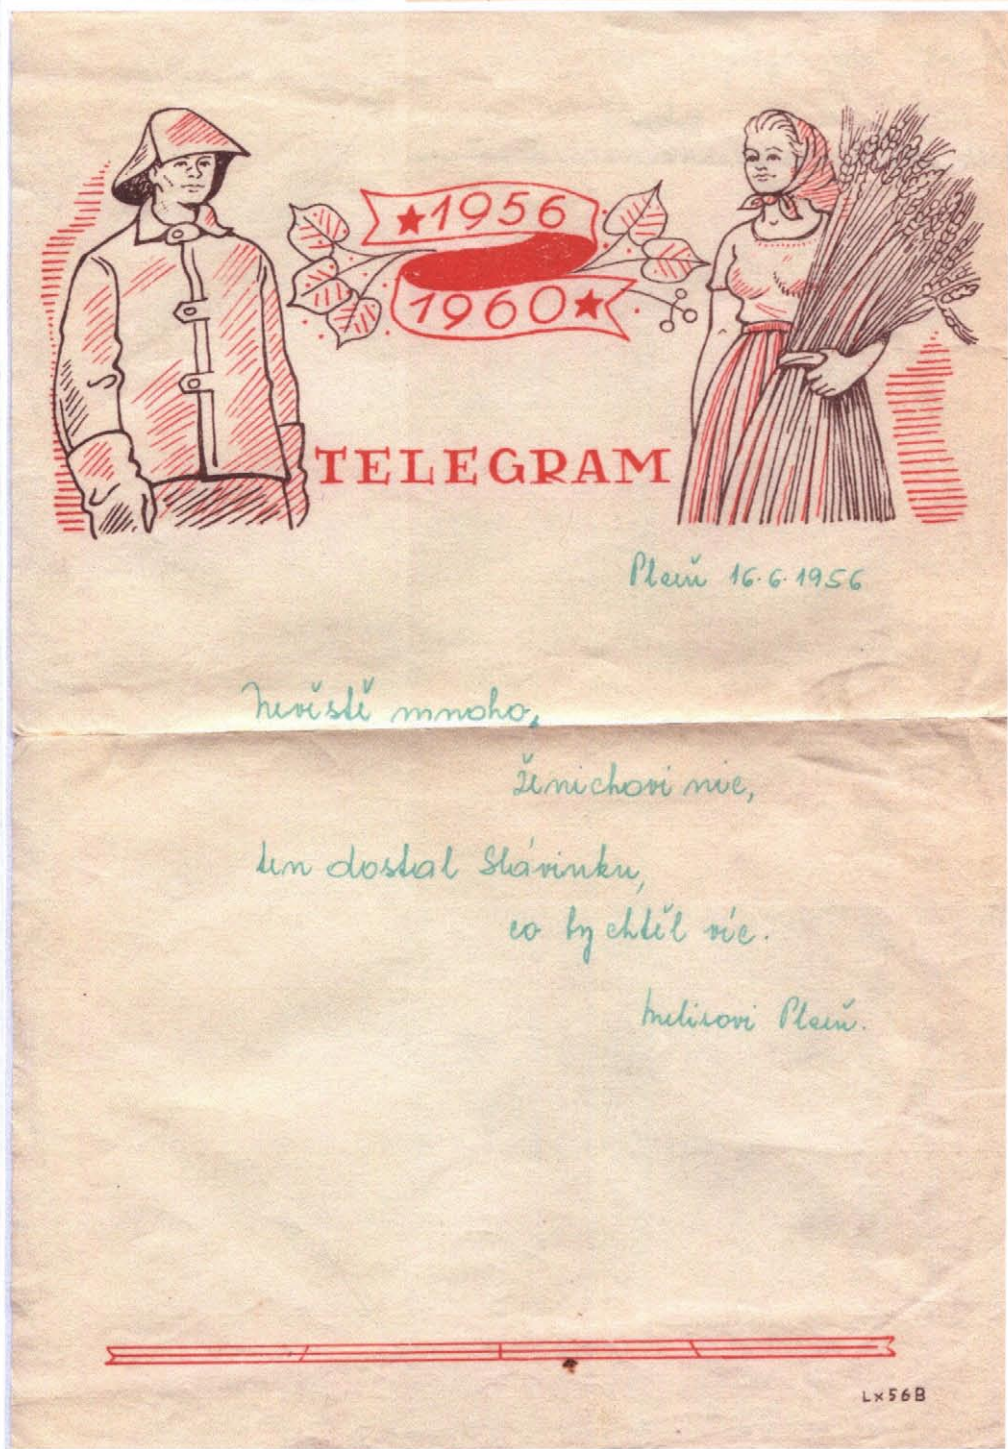 ★1956
1960★
TELEGRAM
Plzeň 16.6.1956
Nevěstě mnoho,
ženichovi nic,
ten dostal Slávinku,
co by chtěl víc.
Plzeň.
L×56B